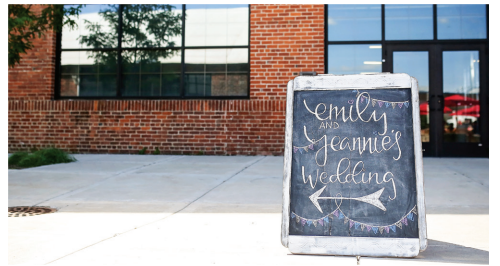 emily
AND
Jeannie's
Wedding